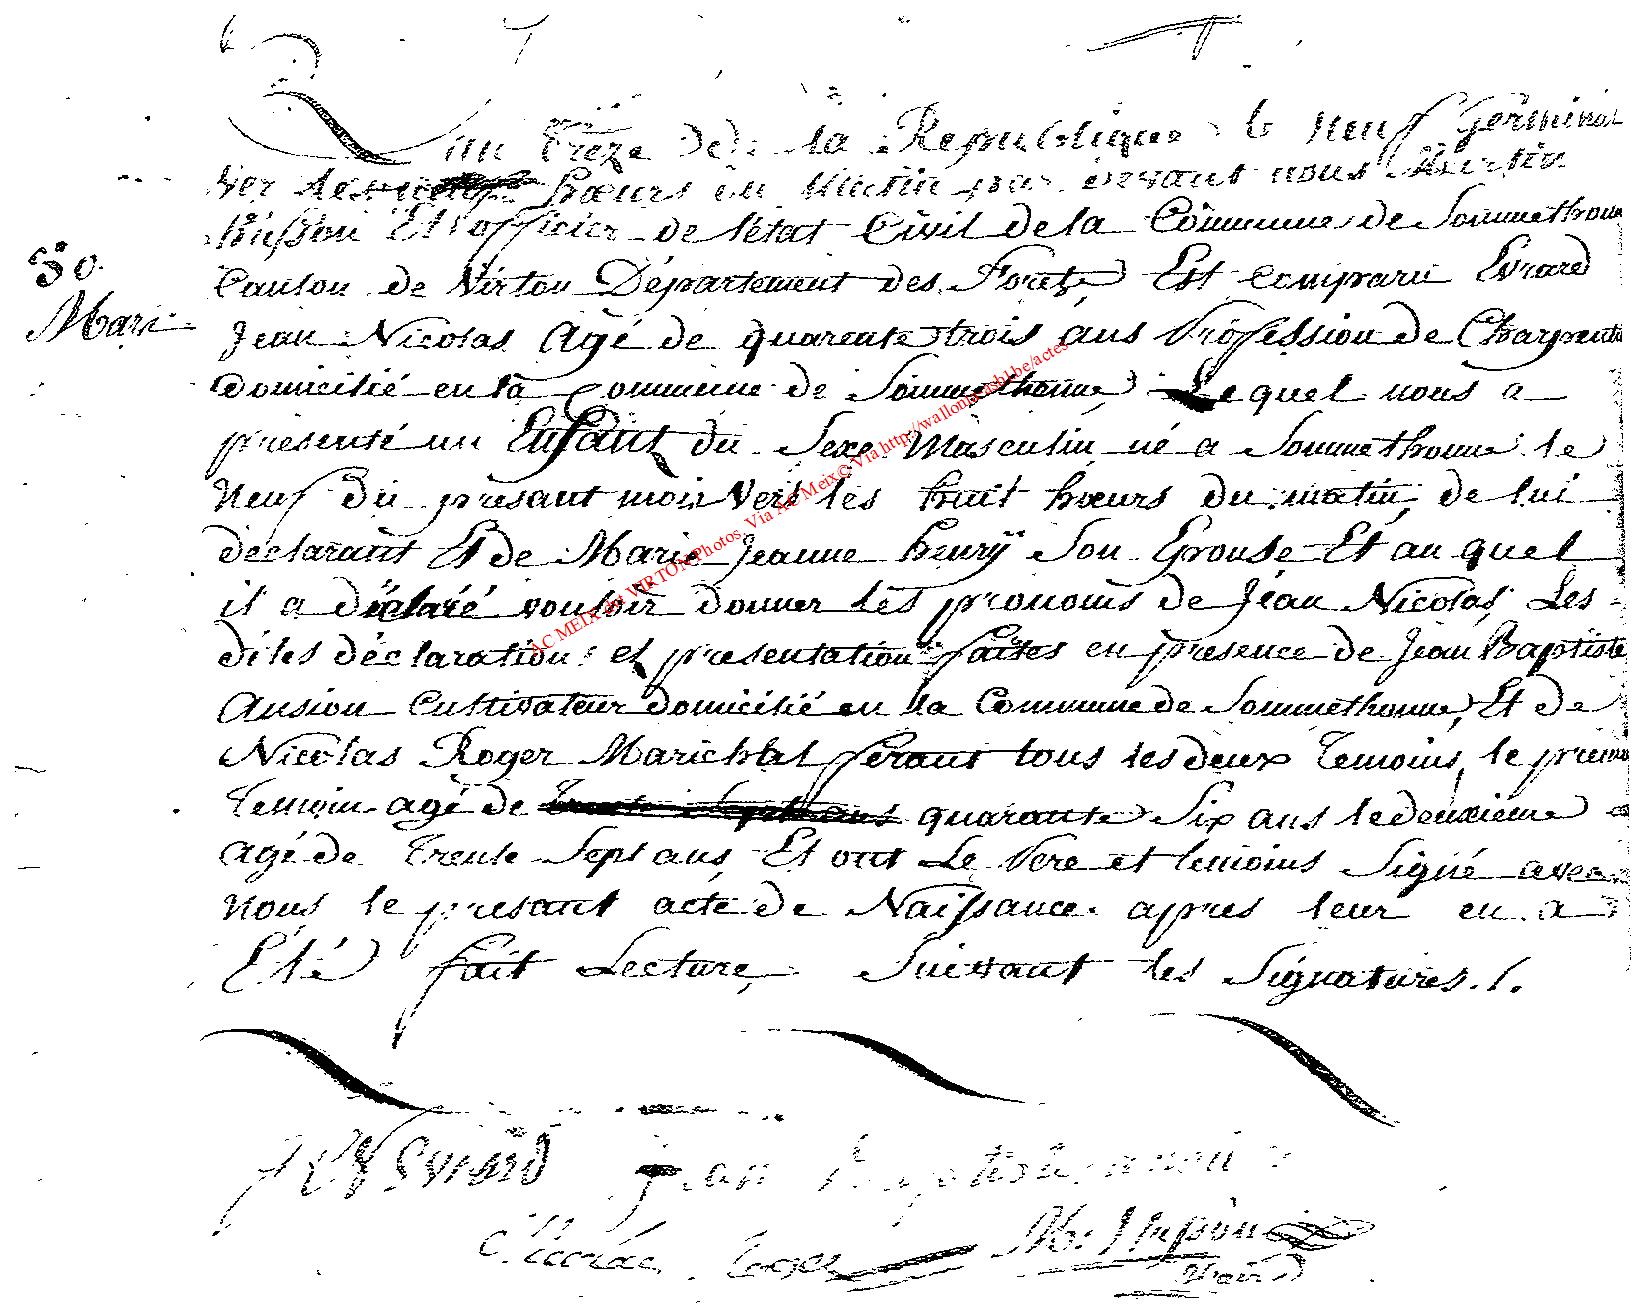 L'an treze de la Republique le neuf Germinal
Ver les hœurs du Matin par devant nous Martin
Husson Et officier de l'état Civil de la Commune de Sommethonne
Canton de Virton Département des Forêts, Est comparu Evrard
30.
Mars
Jean Nicolas Agé de quarente trois ans Profession de Charpentie
domicilié en la Commune de Sommethonne, Lequel nous a
présenté un Enfant du Sexe Masculin né a Sommethonne le
Neuf du présant mois Vers les huit hœurs du matin, de lui
déclarant Et de Marie Jeanne henrÿ Son Epouse Et au quel
il a déclaré vouloir donner les pronoms de Jean Nicolas, Les
dites déclaration et presentation faites en presence de Jean Baptiste
Ansion Cultivateur domicilié en la Commune de Sommethonne, Et de
Nicolas Roger Marichal ferant tous les deux Temoins, le premie
Temoin agé de quarante Six ans le deuxieme
agé de Trente Sept ans, Et ont Le Pere et temoins Signé avec
nous le présant acte de Naissance. apres leur en a
Eté fait Lecture, Suivant les Signatures./.
J N Evrard jean Baptiste ansion
Nicolas Roger M: Husson
Maire
AC MEIX dit VIRTON Photos Via AC Meix© Via http//wallonica.ashl.be/actes